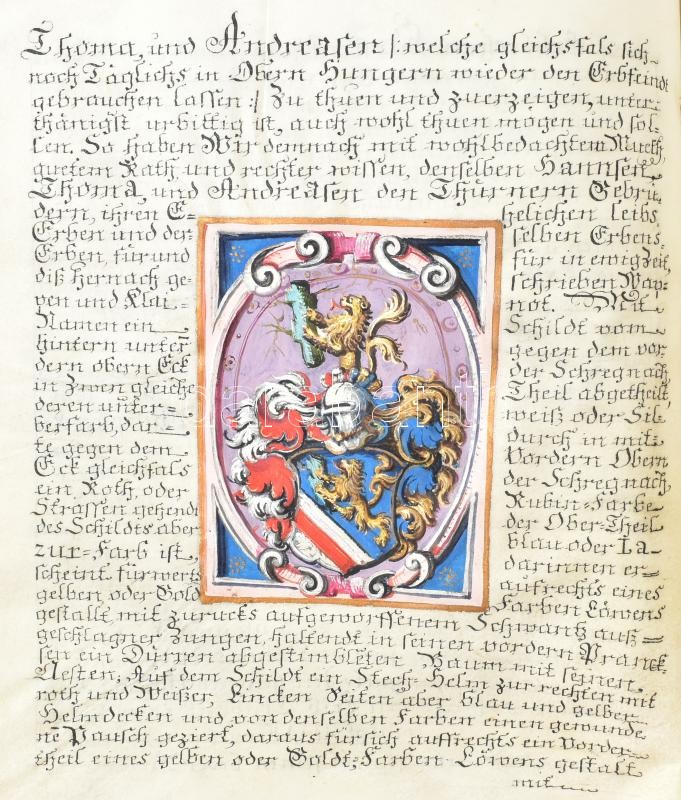 Thoma, und Andreasen /: welche gleichsfals sich
noch Täglichs in Obern Hungern wieder den Erbfeindt
gebrauchen lassen :/ Zu thuen und zuerzeigen, unter=
thänigst urbittig ist, auch wohl thuen mögen und sol=
len. So haben Wir demnach mit wohlbedachtem Mueth,
guetem Rath, und rechter wissen, denselben Hannsen,
Thoma, und Andreasen den Thürnern Gebrü=
dern, ihren E= helichen Leibs
Erben und der= selben Erbens=
Erben, für und für in ewig Zeit,
diß hernach ge= schrieben Wap=
pen und Klai= not. Mit
Namen ein Schildt vom
hintern unter gegen dem vor=
dern obern Eck der Schreg nach,
in Zwen gleiche Theil abgetheilt,
deren unter= weiß oder Sil=
berfarb, dar= durch in mit=
te gegen dem Vordern Obern
Eck gleichfals der Schreg nach,
ein Roth, oder Rubin=Farbe
Strassen gehendt der Ober=Theil
des Schildts aber blau oder La=
zur=Farb ist, darinnen er=
scheint fürwerts aufrechts eines
gelben, oder Gold Farben Löwens
gestalt, mit zurucks aufgeworffenem Schwantz auß=
geschlagner Zungen, haltendt in seinen vordern Pranck=
sen ein Dürren abgestimbleten Baum mit seinen
Aesten; Auf dem Schildt ein Stech=Helm zur rechten mit
roth und Weißer, Lincken Seiten aber blau und gelber
Helmdecken und von denselben Farben einen gewunde=
ne Pausch geziert, daraus für sich auffrechts ein Vorder=
theil eines gelben oder Goldt=Farben Löwens gestalt
mit